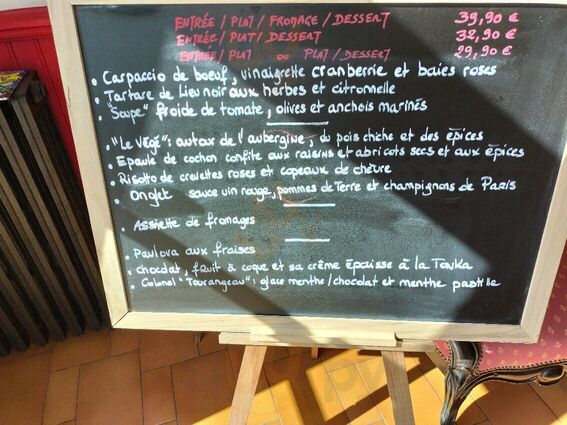 ENTRÉE / PLAT / FROMAGE / DESSERT 39,90 €
ENTRÉE / PLAT / DESSERT 32,90 €
ENTRÉE / PLAT OU PLAT / DESSERT 29,90 €
• Carpaccio de boeuf, vinaigrette cranberrie et baies roses
• Tartare de Lieu noir aux herbes et citronnelle
• "Soupe" froide de tomate, olives et anchois marinés
• "Le Végé": autour de l'aubergine, du pois chiche et des épices
• Epaule de cochon confite aux raisins et abricots secs et aux épices
• Risotto de crevettes roses et copeaux de chèvre
• Onglet sauce vin rouge, pommes de Terre et champignons de Paris
• Assiette de fromages
• Pavlova aux fraises
• chocolat, fruit à coque et sa crème épaisse à la Tonka
• Colonel "Tourangeau": glace menthe / chocolat et menthe pastille